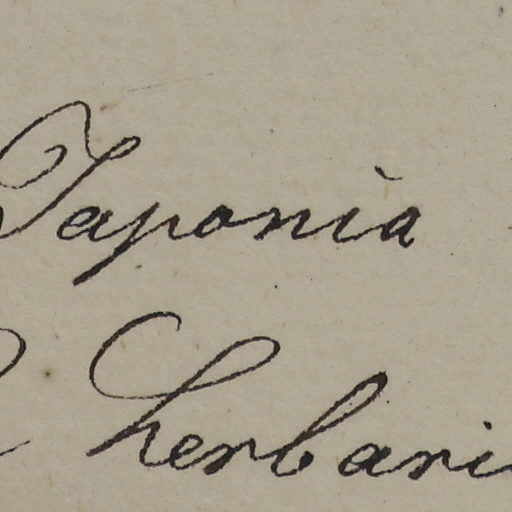 Japonia
herbari